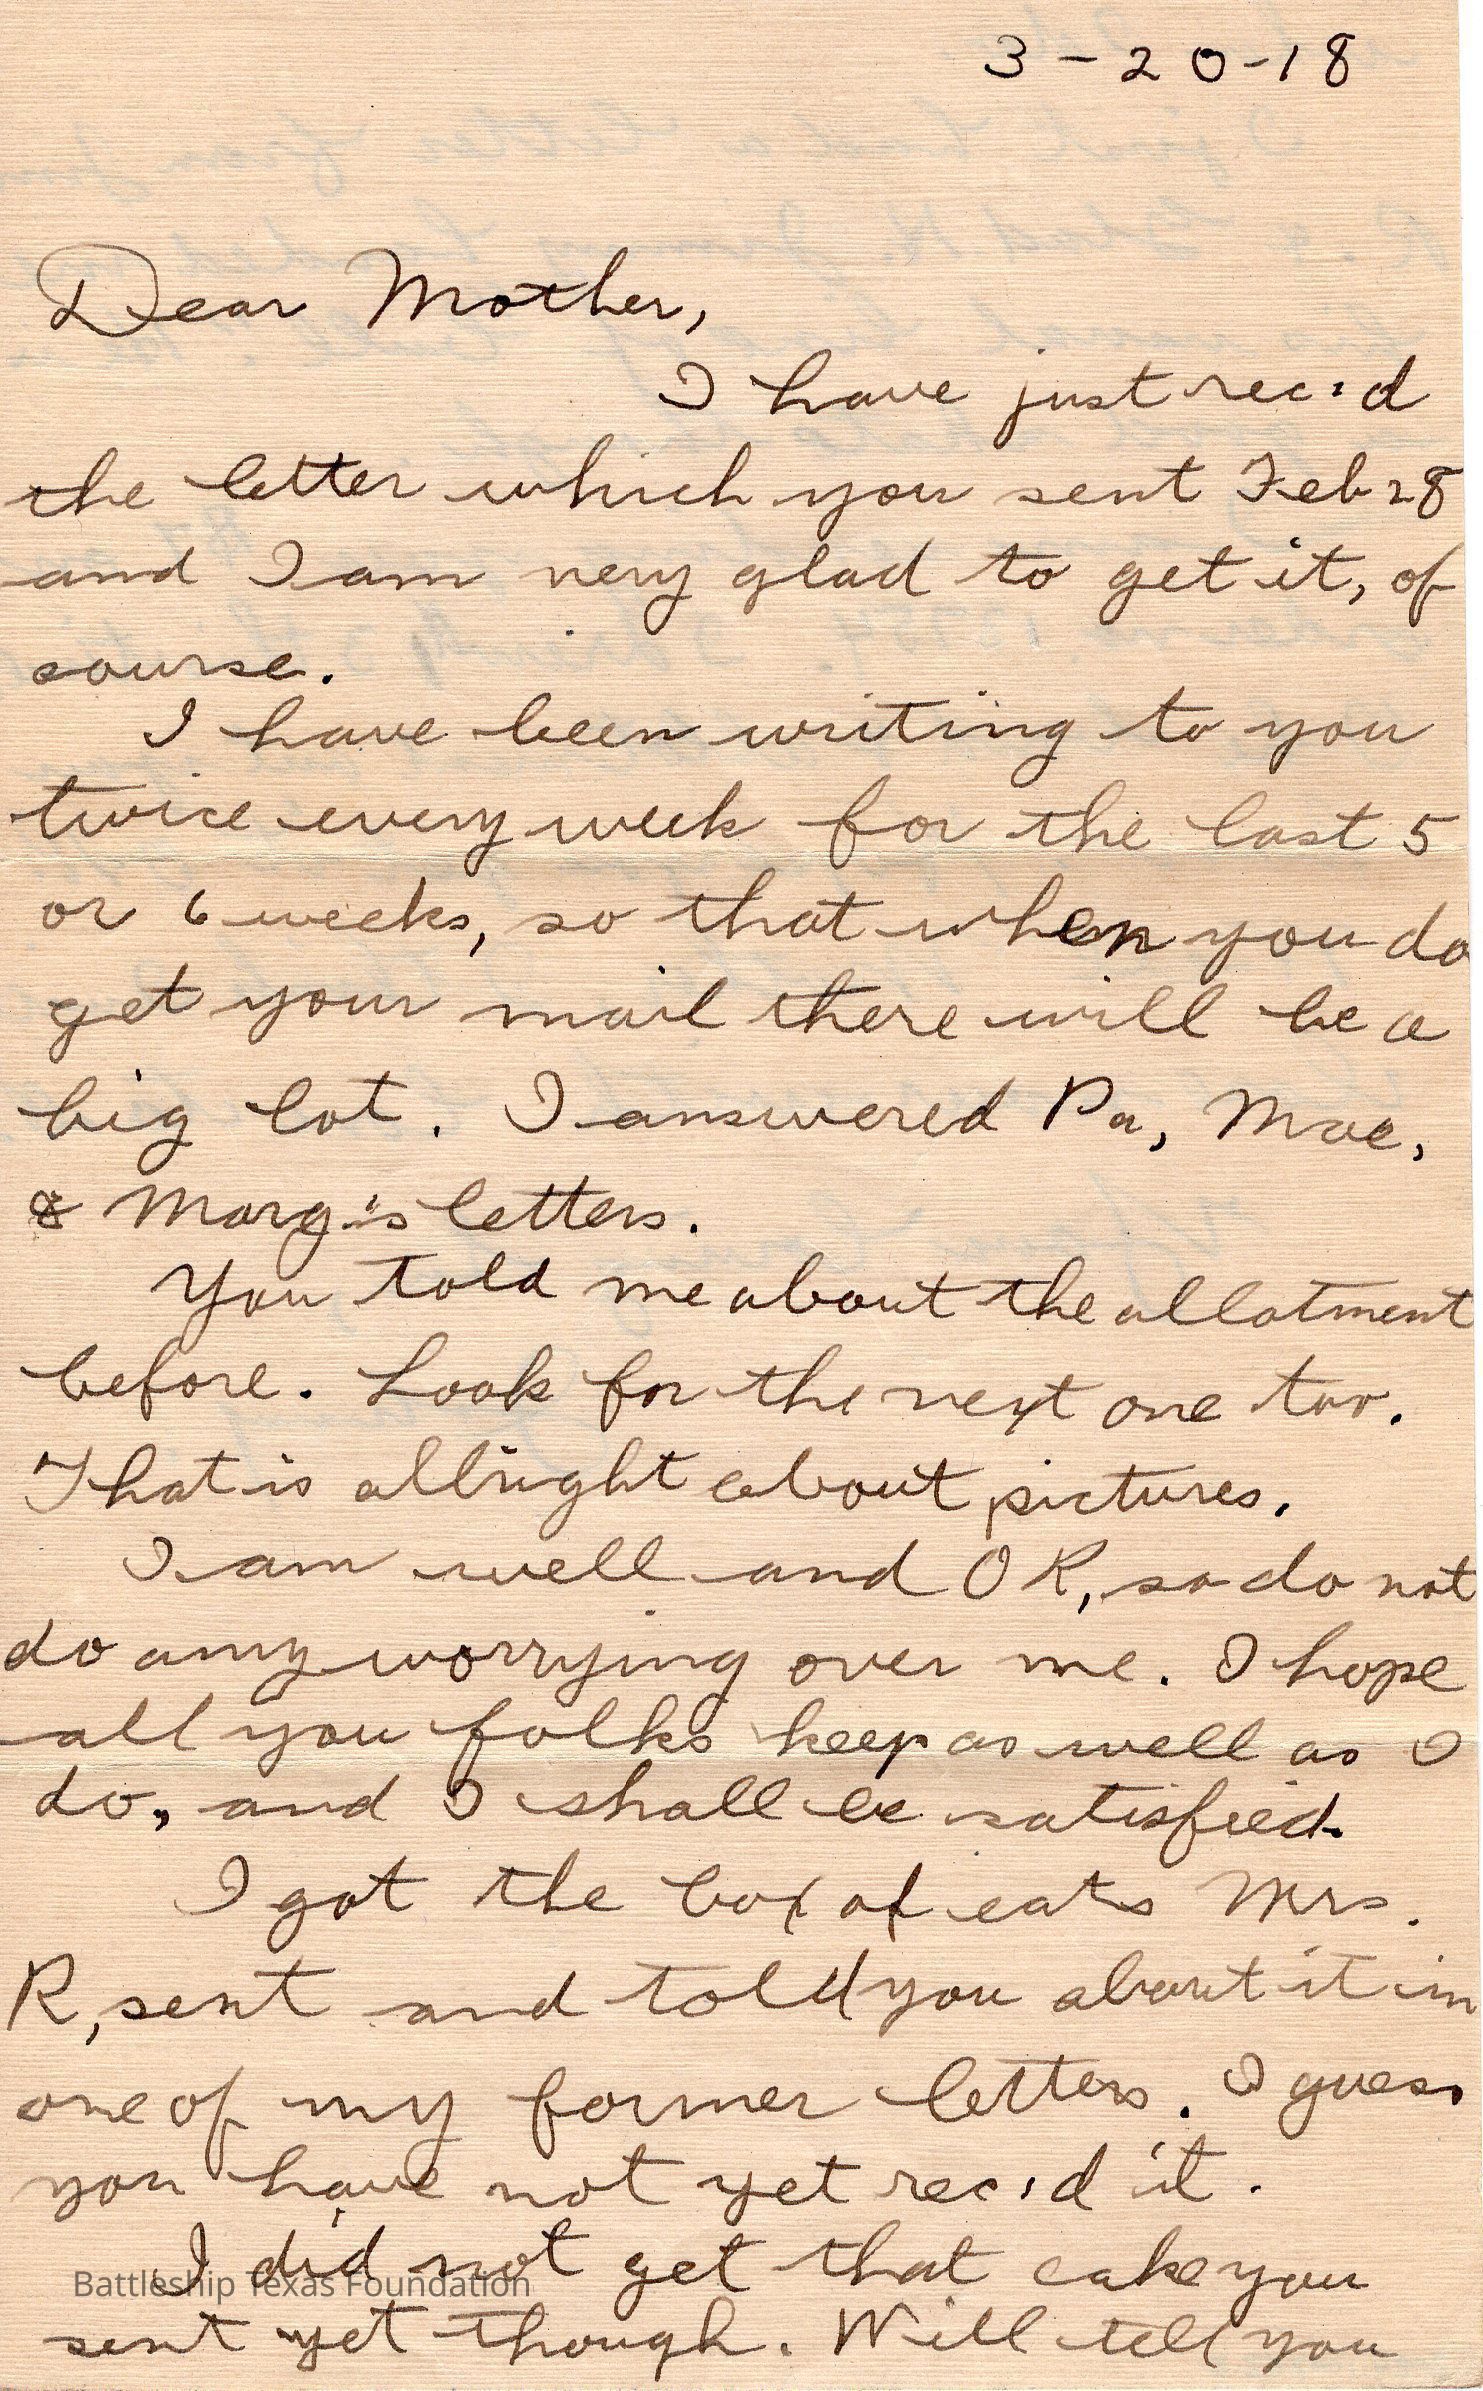 3-20-18
Dear Mother,
I have just rec'd
the letter which you sent Feb 28
and I am very glad to get it, of
course.
I have been writing to you
twice every week for the last 5
or 6 weeks, so that when you do
get your mail there will be a
big lot. I answered Pa, Mae,
& Marg's letters.
You told me about the allotment
before. Look for the next one too.
That is allright about pictures.
I am well and OK, so do not
do any worrying over me. I hope
all you folks keep as well as I
do, and I shall be satisfied.
I got the box of eats Mrs.
R, sent and told you about it in
one of my former letters. I guess
you have not yet rec'd it.
I did not get that cake you
Battleship Texas Foundation
sent yet though. Will tell you